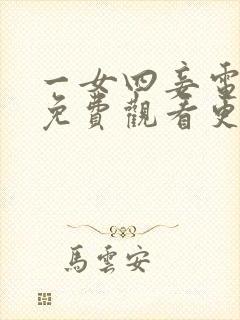 一女四妾電
免費觀看史
馬雲安